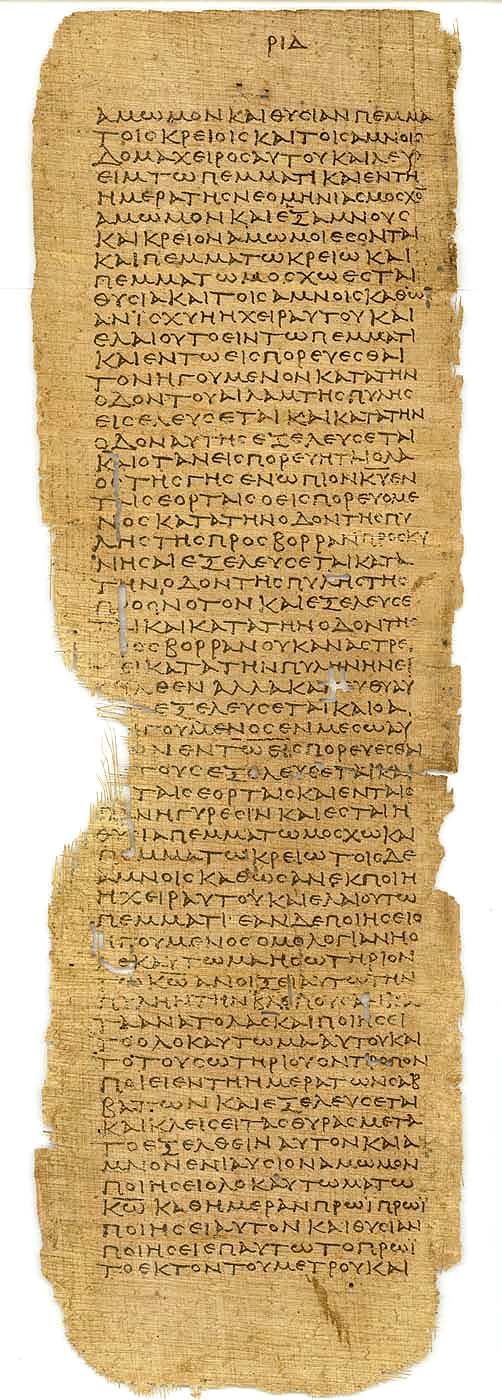 ΡΙΔ
ΑΜΩΜΟΝ ΚΑΙ ΘΥCΙΑΝ ΠΕΜΜΑ
ΤΟΙC ΚΡΕΙΟΙC ΚΑΙ ΤΟΙC ΑΜΝΟΙC
ΔΟΜΑ ΧΕΙΡΟC ΑΥΤΟΥ ΚΑΙ ΕΛΑΙΟΥ
ΕΙΜ ΤΩ ΠΕΜΜΑΤΙ ΚΑΙ ΕΝ ΤΗ
ΗΜΕΡΑ ΤΗC ΝΕΟΜΗΝΙΑC ΜΟCΧΟ
ΑΜΩΜΟΝ ΚΑΙ ΕΞ ΑΜΝΟΥC
ΚΑΙ ΚΡΕΙΟΝ ΑΜΩΜΟΙ ΕCΟΝΤΑΙ
ΚΑΙ ΠΕΜΜΑ ΤΩ ΚΡΕΙΩ ΚΑΙ
ΠΕΜΜΑ ΤΩ ΜΟCΧΩ ΕCΤΑΙ
ΘΥCΙΑ ΚΑΙ ΤΟΙC ΑΜΝΟΙC ΚΑΘΩ
ΑΝ ΙCΧΥΗ Η ΧΕΙΡ ΑΥΤΟΥ ΚΑΙ
ΕΛΑΙΟΥ ΤΟ ΕΙΝ ΤΩ ΠΕΜΜΑΤΙ
ΚΑΙ ΕΝ ΤΩ ΕΙCΠΟΡΕΥΕCΘΑΙ
ΤΟΝ ΗΓΟΥΜΕΝΟΝ ΚΑΤΑ ΤΗΝ
ΟΔΟΝ ΤΟΥ ΑΙΛΑΜ ΤΗC ΠΥΛΗC
ΕΙCΕΛΕΥCΕΤΑΙ ΚΑΙ ΚΑΤΑ ΤΗΝ
ΟΔΟΝ ΑΥΤΗC ΕΞΕΛΕΥCΕΤΑΙ
ΚΑΙ ΟΤΑΝ ΕΙCΠΟΡΕΥΗΤΑΙ Ο ΛΑ
ΟC ΤΗC ΓΗC ΕΝΩΠΙΟΝ ΚΥ ΕΝ
ΤΑΙC ΕΟΡΤΑΙC Ο ΕΙCΠΟΡΕΥΟΜΕ
ΝΟC ΚΑΤΑ ΤΗΝ ΟΔΟΝ ΤΗC ΠΥ
ΛΗC ΤΗC ΠΡΟC ΒΟΡΡΑΝ ΠΡΟCΚΥ
ΝΗCΑΙ ΕΞΕΛΕΥCΕΤΑΙ ΚΑΤΑ
ΤΗΝ ΟΔΟΝ ΤΗC ΠΥΛΗC ΤΗC
ΠΡΟC ΝΟΤΟΝ ΚΑΙ ΕΞΕΛΕΥCΕ
ΤΑΙ ΚΑΙ ΚΑΤΑ ΤΗΝ ΟΔΟΝ ΤΗC
ΟC ΒΟΡΡΑΝ ΟΥΚ ΑΝΑCΤΡΕ
ΕΙ ΚΑΤΑ ΤΗΝ ΠΥΛΗΝ ΗΝ ΕΙ
ΛΘΕΝ ΑΛΛΑ ΚΑΤ ΕΥΘΥ ΑΥ
ΕΞΕΛΕΥCΕΤΑΙ ΚΑΙ Ο Α
ΓΟΥΜΕΝΟC ΕΝ ΜΕCΩ ΑΥ
ΩΝ ΕΝ ΤΩ ΕΙCΠΟΡΕΥΕCΘΑΙ
ΤΟΥC ΕΞΕΛΕΥCΕΤΑΙ ΚΑΙ
ΤΑΙC ΕΟΡΤΑΙC ΚΑΙ ΕΝ ΤΑΙC
ΠΑΝΗΓΥΡΕCΙΝ ΚΑΙ ΕCΤΑΙ Η
ΘΥCΙΑ ΠΕΜΜΑ ΤΩ ΜΟCΧΩ ΚΑΙ
ΠΕΜΜΑ ΤΩ ΚΡΕΙΩ ΤΟΙC ΔΕ
ΑΜΝΟΙC ΚΑΘΩC ΑΝ ΕΚΠΟΙΗ
Η ΧΕΙΡ ΑΥΤΟΥ ΚΑΙ ΕΛΑΙΟΥ ΤΩ
ΠΕΜΜΑΤΙ ΕΑΝ ΔΕ ΠΟΙΗCΕΙ Ο
ΗΓΟΥΜΕΝΟC ΟΜΟΛΟΓΙΑΝ Η Ο
ΛΟΚΑΥΤΩΜΑ Η CΩΤΗΡΙΟΝ
ΤΩ ΚΩ ΑΝΟΙΞΕΙ ΑΥΤΩ ΤΗΝ
ΠΥΛΗΝ ΤΗΝ ΒΛΕΠΟΥCΑΝ ΚΑ
ΤΑ ΑΝΑΤΟΛΑC ΚΑΙ ΠΟΙΗCΕΙ
ΤΟ ΟΛΟΚΑΥΤΩΜΑ ΑΥΤΟΥ ΚΑΙ
ΤΟ ΤΟΥ CΩΤΗΡΙΟΥ ΟΝ ΤΡΟΠΟΝ
ΠΟΙΕΙ ΕΝ ΤΗ ΗΜΕΡΑ ΤΩΝ CΑΒ
ΒΑΤΩΝ ΚΑΙ ΕΞΕΛΕΥCΕΤΑΙ
ΚΑΙ ΚΛΕΙCΕΙ ΤΑC ΘΥΡΑC ΜΕΤΑ
ΤΟ ΕΞΕΛΘΕΙΝ ΑΥΤΟΝ ΚΑΙ Α
ΜΝΟΝ ΕΝΙΑΥCΙΟΝ ΑΜΩΜΟΝ
ΠΟΙΗCΕΙ ΟΛΟΚΑΥΤΩΜΑ ΤΩ
ΚΩ ΚΑΘ ΗΜΕΡΑΝ ΠΡΩΪ ΠΡΩΪ
ΠΟΙΗCΕΙ ΑΥΤΟΝ ΚΑΙ ΘΥCΙΑΝ
ΠΟΙΗCΕΙ ΕΠ ΑΥΤΩ ΤΟ ΠΡΩΪ
ΤΟ ΕΚΤΟΝ ΤΟΥ ΜΕΤΡΟΥ ΚΑΙ